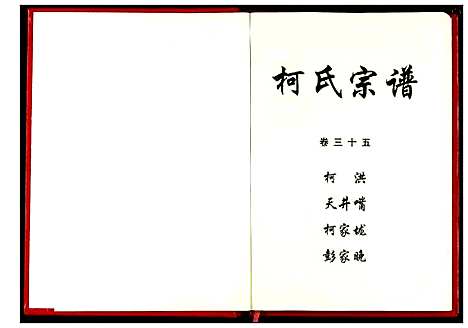 柯氏宗谱
卷三十五
柯洪
天井嘴
柯家垅
彭家晚